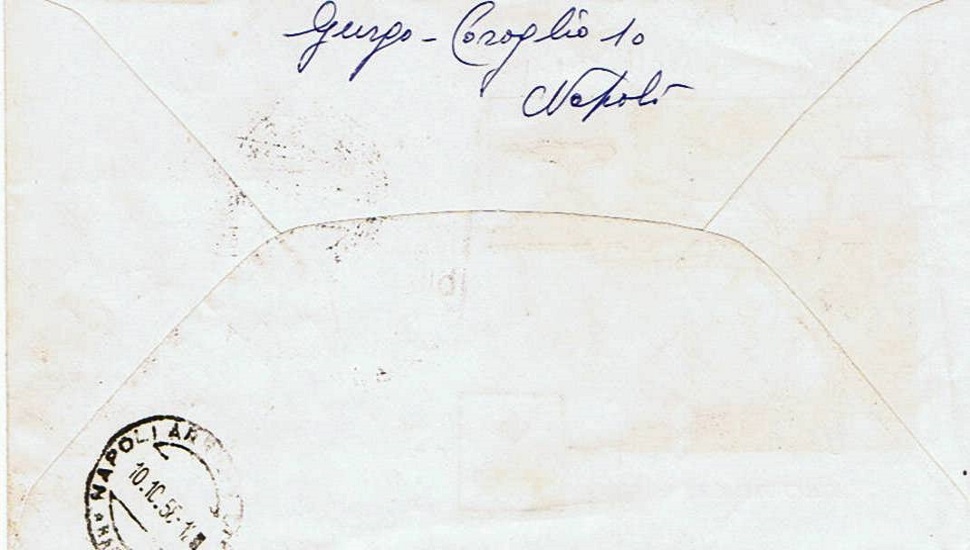 Gurgo - Coroglio 10
Napoli
NAPOLI
10.10.56